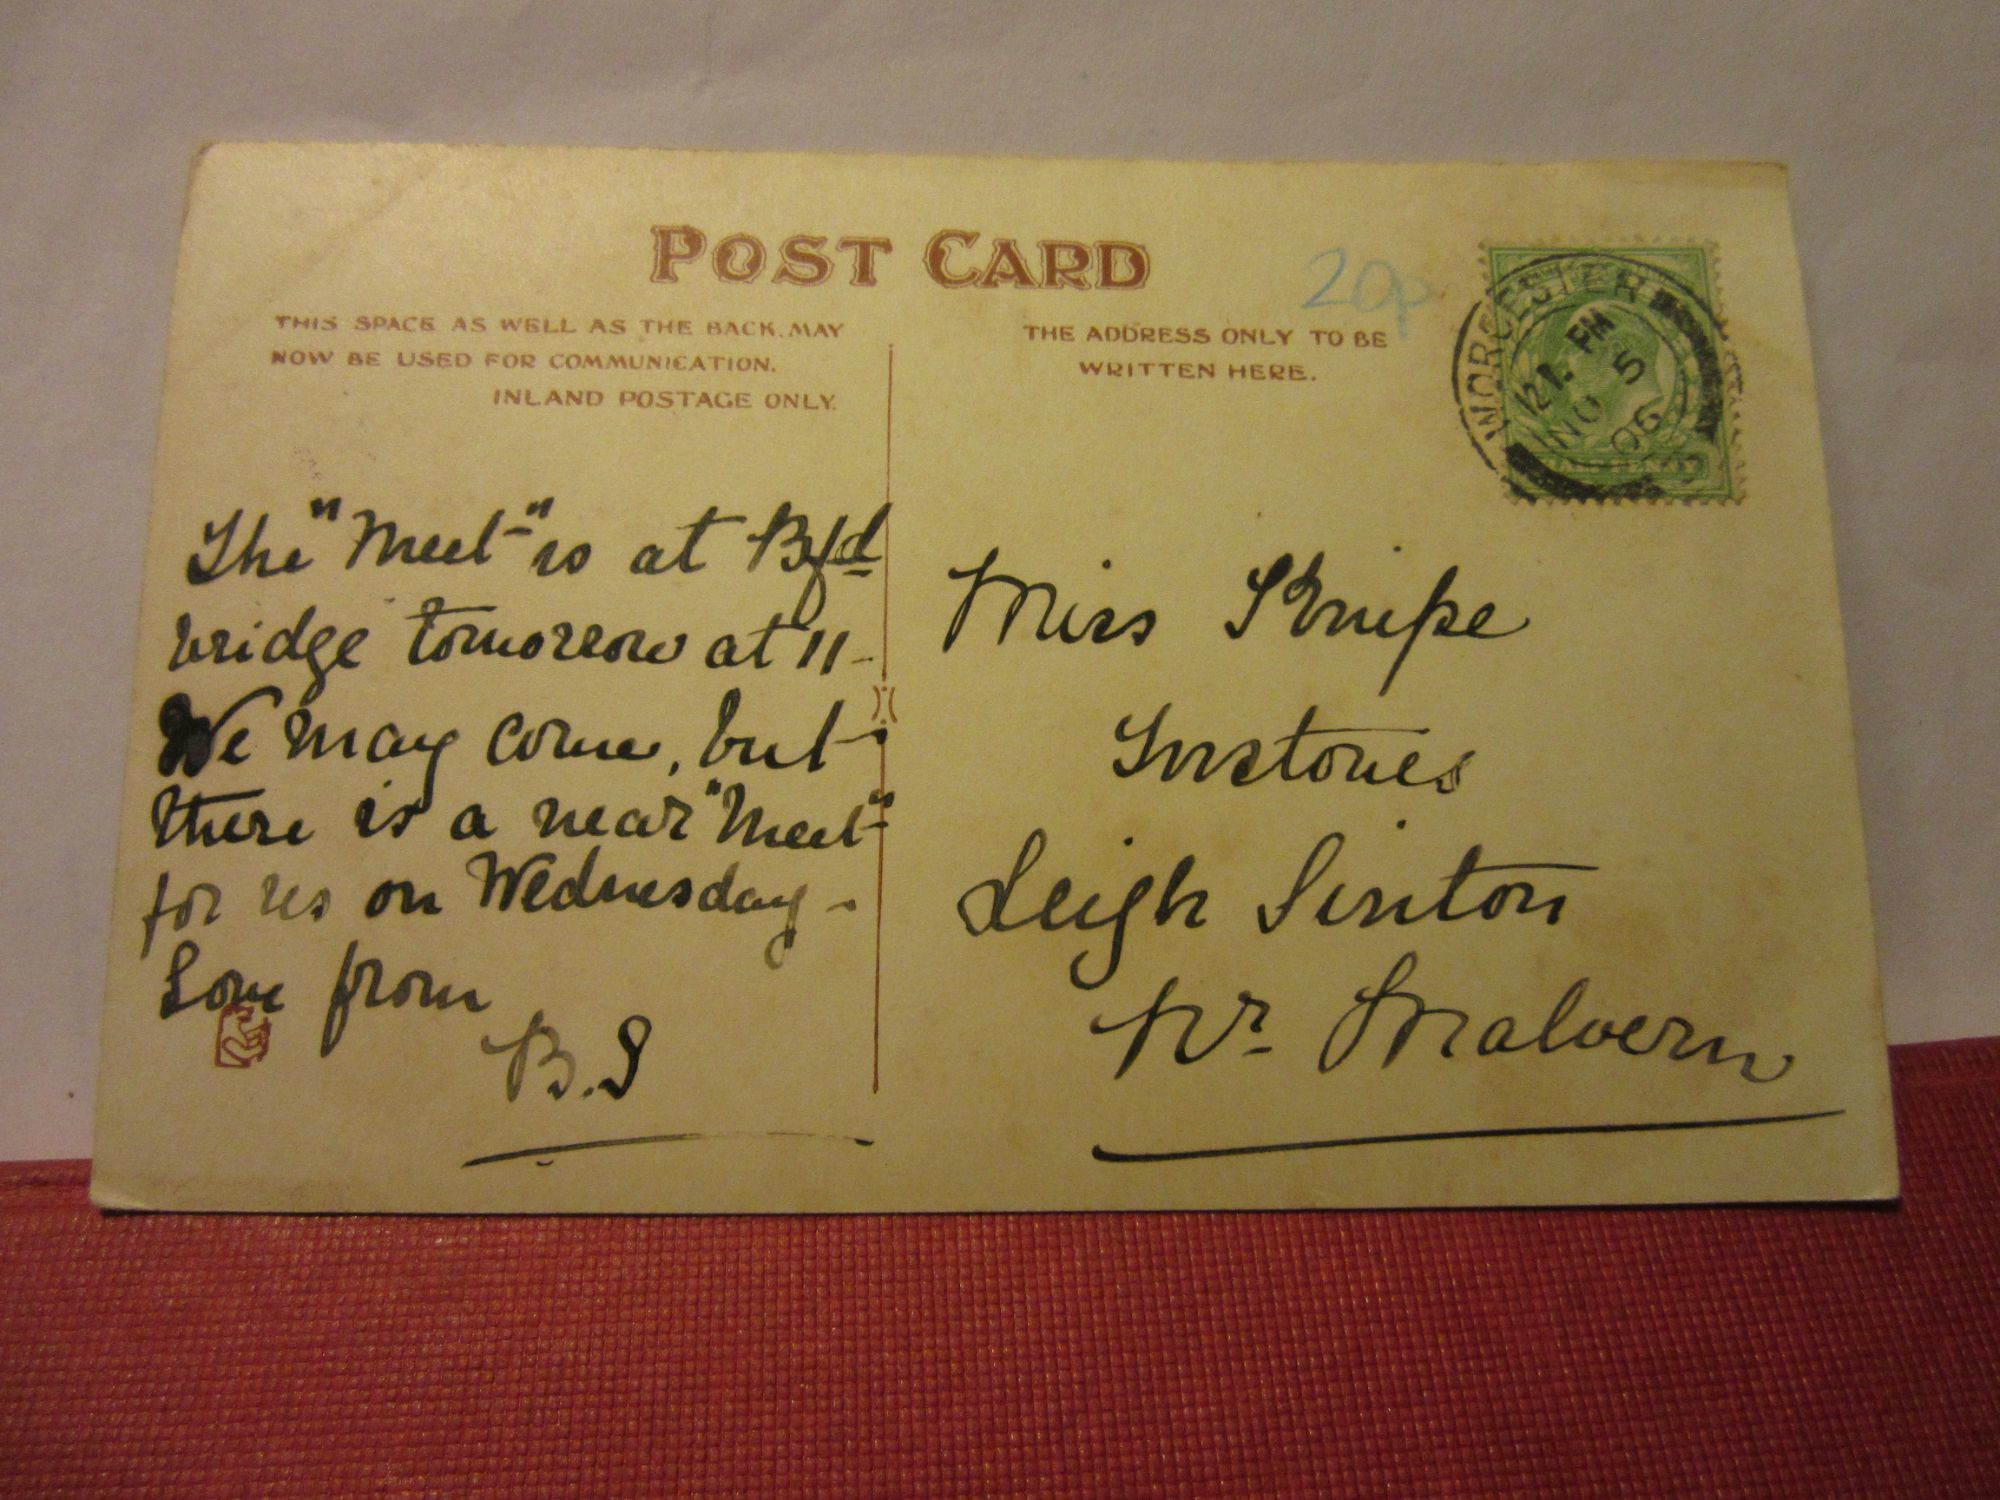 POST CARD
THIS SPACE AS WELL AS THE BACK, MAY
NOW BE USED FOR COMMUNICATION.
INLAND POSTAGE ONLY.
THE ADDRESS ONLY TO BE
WRITTEN HERE.
20p
WORCESTER
12 1. PM
NO 5
06
HALFPENNY
The "Meet" is at Bfd
bridge tomorrow at 11 -
We may come, but
there is a near "Meet"
for us on Wednesday -
Love from
B.S
Miss
Instones
Leigh Sinton
Nr Malvern